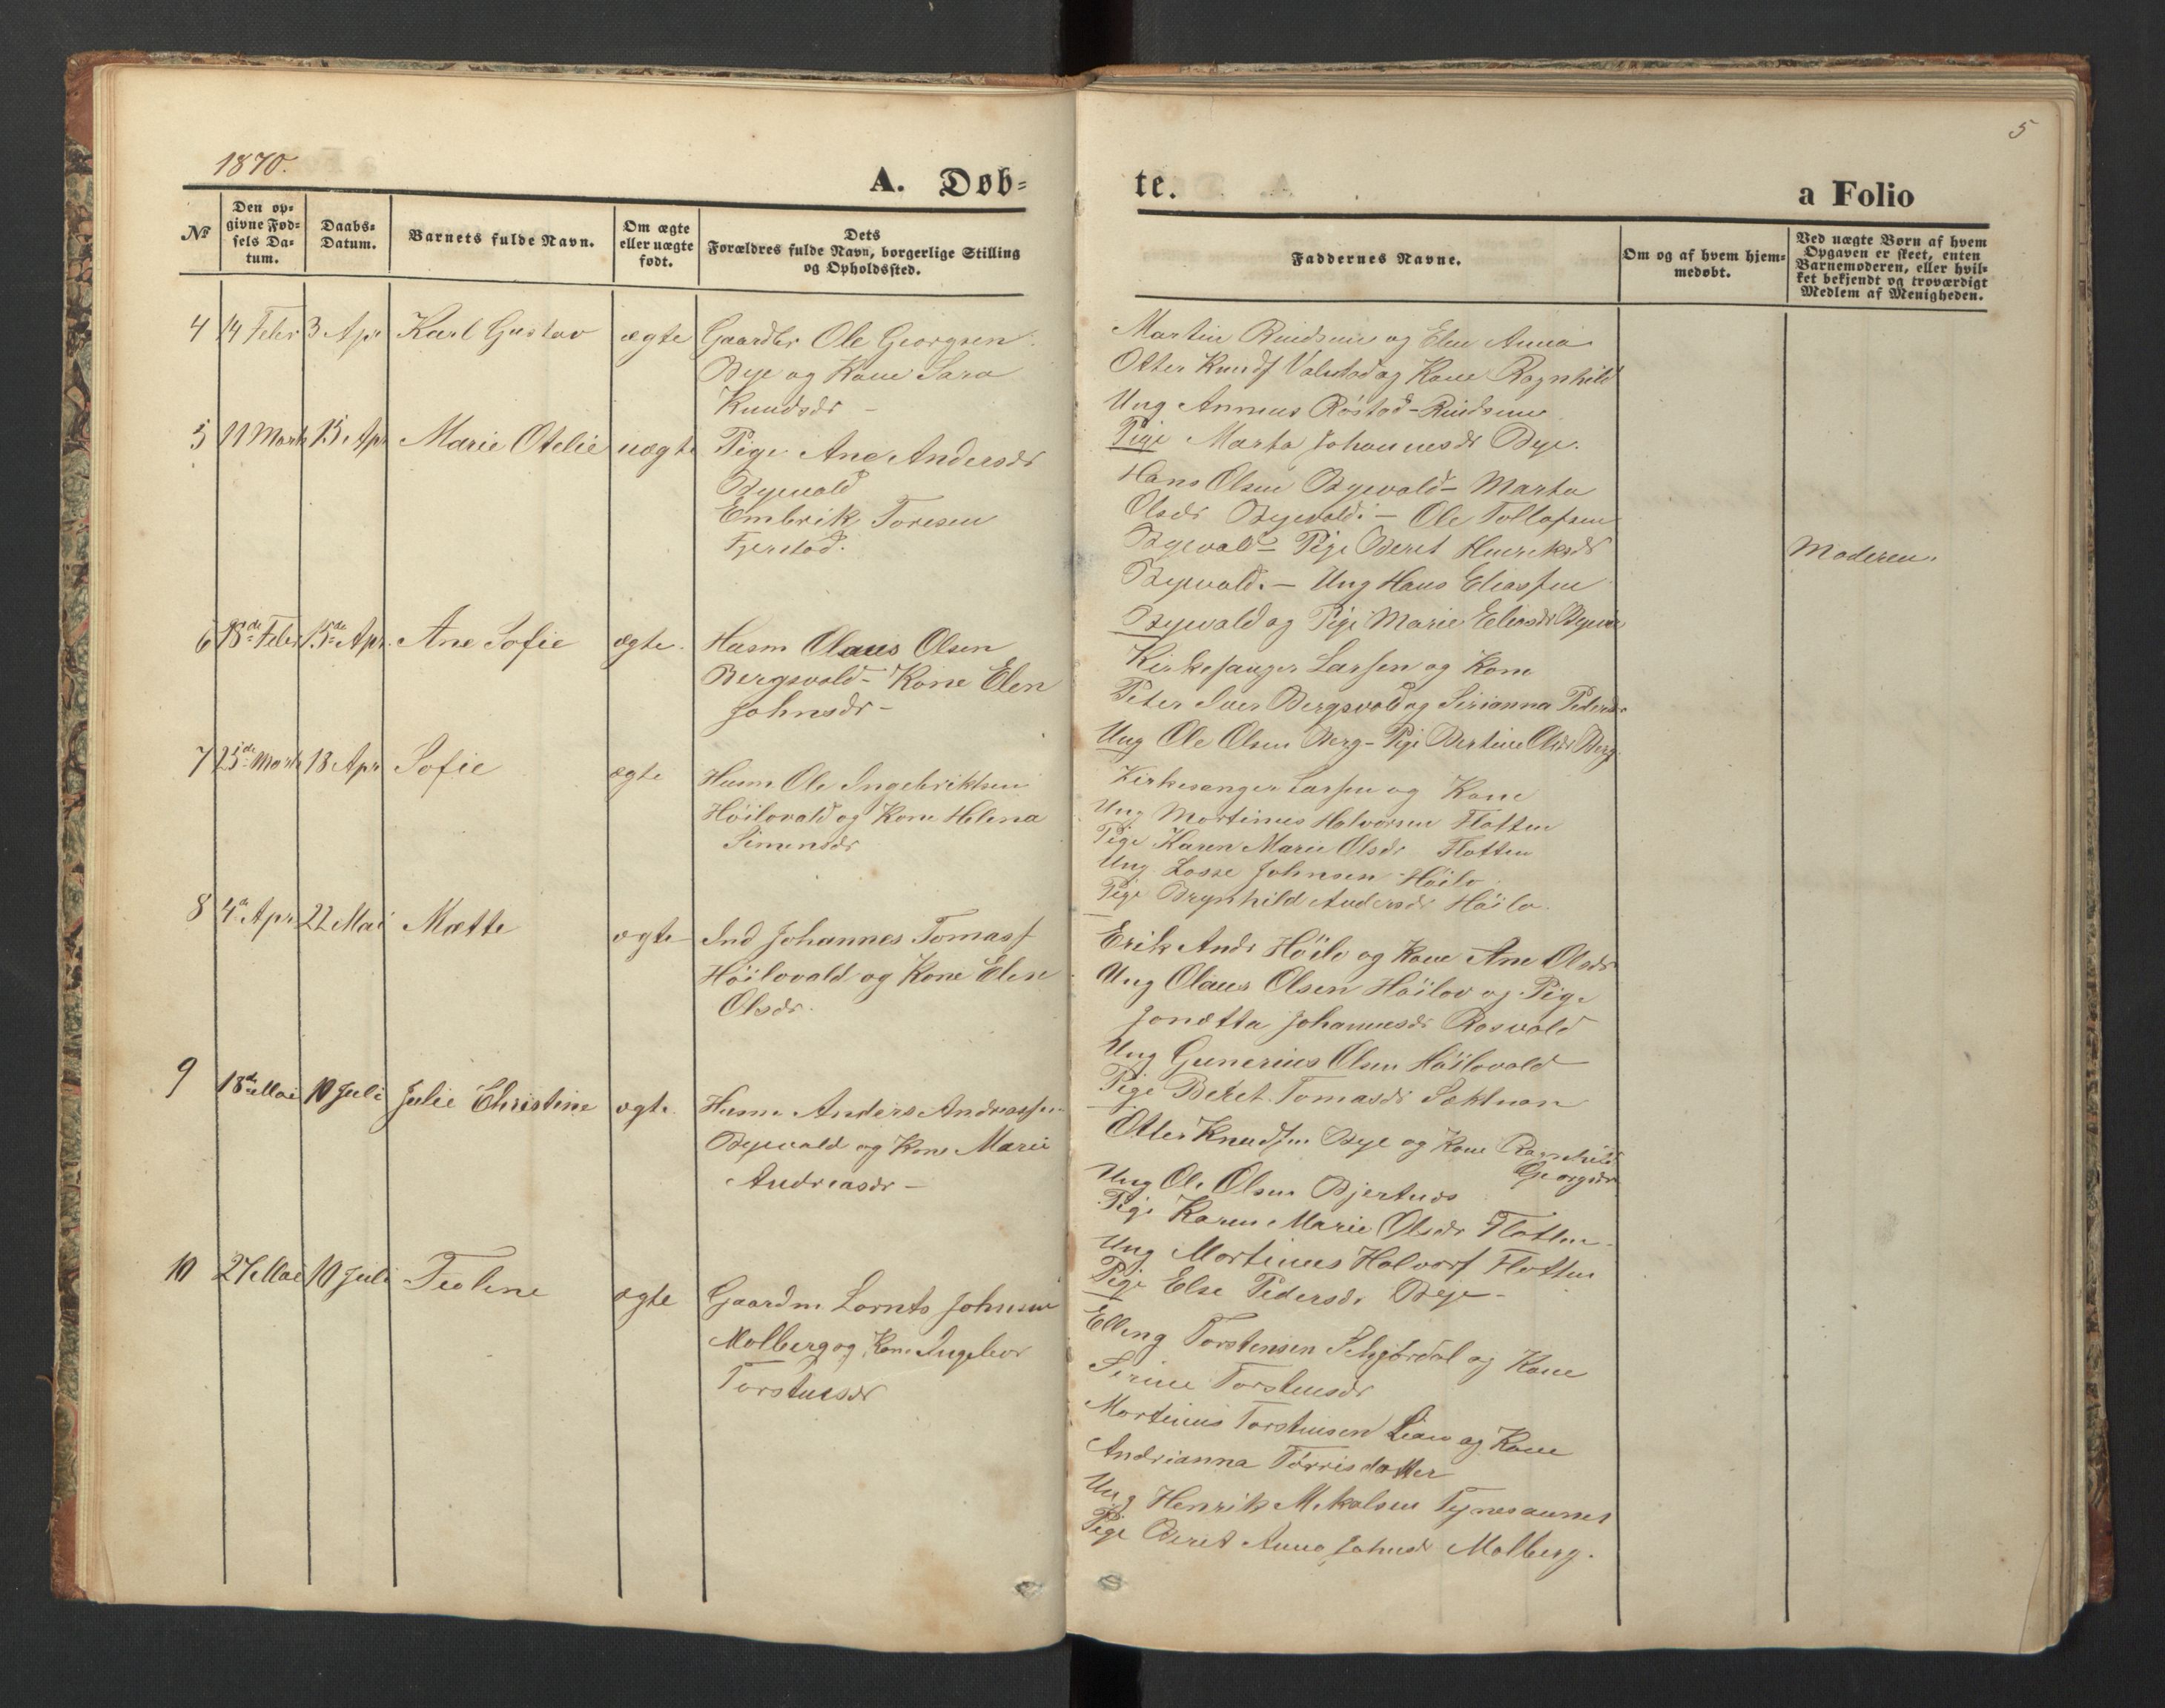 1870.
A. Døb=
te.
a Folio
5
№
Den op=
givne Fød=
sels Da=
tum.
Daabs=
Datum.
Barnets fulde Navn.
Om ægte
eller uægte
født.
Dets
Forældres fulde Navn, borgerlige Stilling
og Opholdssted.
Faddernes Navne.
Om og af hvem hjem=
medøbt.
Ved uægte Børn af hvem
Opgaven er skeet, enten
Barnemoderen, eller hvil=
ket bekjendt og troværdigt
Medlem af Menigheden.
4 14 Febr 3 Apr Karl Gustav ægte Gaardbr Ole Georgsen
Bye og Kone Sara
Knudsdr -
Martin and Elen Anna
Otter Knuds og Kone Ragnhild
Ung Annæus Røstad-
Pige Marta Johannesdr Bye.
5 11 Marts 15 Apr Marie Otelie uægte Pige Ane Andersdr
Byevald
Embrik Toresen
Fjerstad.
Hans Olsen Byevald - Marta
Olsdr Byevald. - Ole Tollefsen
Byevald - Pige Beret Henriksdr
Byevald. - Ung Hans Eliassen
Byevald og Pige Marie Eliasdr
Moderen.
6 18de Febr 15de Apr. Ane Sofie ægte. Husm Olaus Olsen
Bergsvald - Kone Elen
Johnsdr -
Kirkesanger Larsen og Kone
Peter Iver Bergsvald og Sirianna Pedersdr
Ung Ole Olsen Berg - Pige Bertine Olsdr Berg.
7 25de Marts 18 Apr Sofie ægte Husm Ole Ingebriktsen
Høilovald og Kone Helena
Simensdr
Kirkesanger Larsen og Kone
Ung Mortinus Halvorsen Flotten
Pige Karen Marie Olsdr Flotten
Ung Losse Johnsen Høilo
Pige Brynhild Andersdr Høilo.
8 4de Apr 22 Mai Mætte ægte Ind Johannes Tomass
Høilovald og Kone Elen
Olsdr.
Erik Andr Høilo og Kone Ane Olsdr
Ung Olaus Olsen Høilov og Pige
Jonetta Johannesdr Rosvold
Ung Gunerius Olsen Høilovald
Pige Beret Tomasdr
9 18de Mai 10 Juli Julie Christine ægte. Husm Anders Andreassen
Byevald og Kone Marie
Andreasdr -
Otter Knudsen Bye og Kone Ragnhild
Georgsdr
Ung Ole Olsen Bjertnes
Pige Karen Marie Olsdr Flotten
Ung Mortinus Halvors Flotten
Pige Else Pedersdr Bye -
10 27 Mai 10 Juli Teoline ægte Gaardm Lornts Johnsen
Molberg og Kone Ingebor
Torstensdr
Elling Torstensen og Kone
Sirine Torstensdr
Mortinus Torstensen og Kone
Andrianna Torrisdatter
Ung Henrik Mikalsen
Pige Beret Anna Johnsdr Molberg.